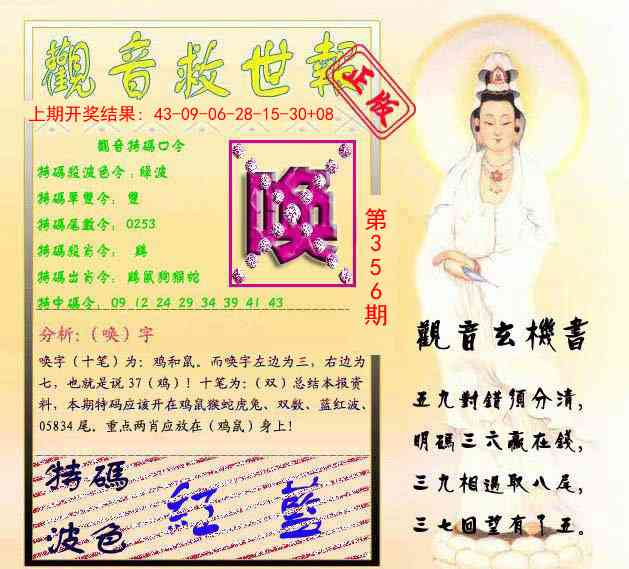 觀音救世報
正版
上期开奖结果：43-09-06-28-15-30+08
觀音特碼口令
特碼殺波色令：綠波
特碼單雙令： 雙
特碼尾數令： 0253
特碼殺肖令：
特碼出肖令： 鼠狗猴蛇
特中碼令： 09 12 24 29 34 39 41 43
喚
第356期
分析:（唤）字
唤字（十笔）为：鸡和鼠。而唤字左边为三，右边为
七，也就是说 37（鸡）！十笔为：（双）总结本报资
料，本期特码应该开在鸡鼠猴蛇虎兔、双数、蓝红波、
05834 尾。重点两肖应放在（鸡鼠）身上！
特碼
波色
紅 藍
觀音玄機書
五九對錯須分清，
明碼三六贏在錢，
三九相遇取八尾，
三七回望有了五。